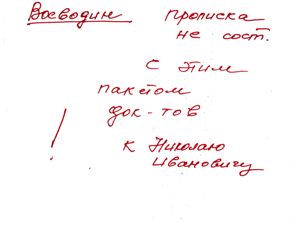 Воеводин прописка
не сост.
с этим
пакетом
док-тов
! к Николаю
Ивановичу